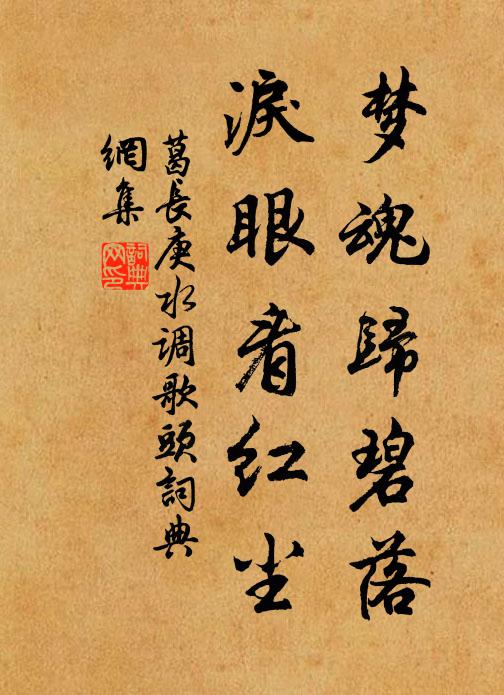 梦魂歸碧落
淚眼看红尘
葛長庚水调歌頭詞典
網集
詞典
网印